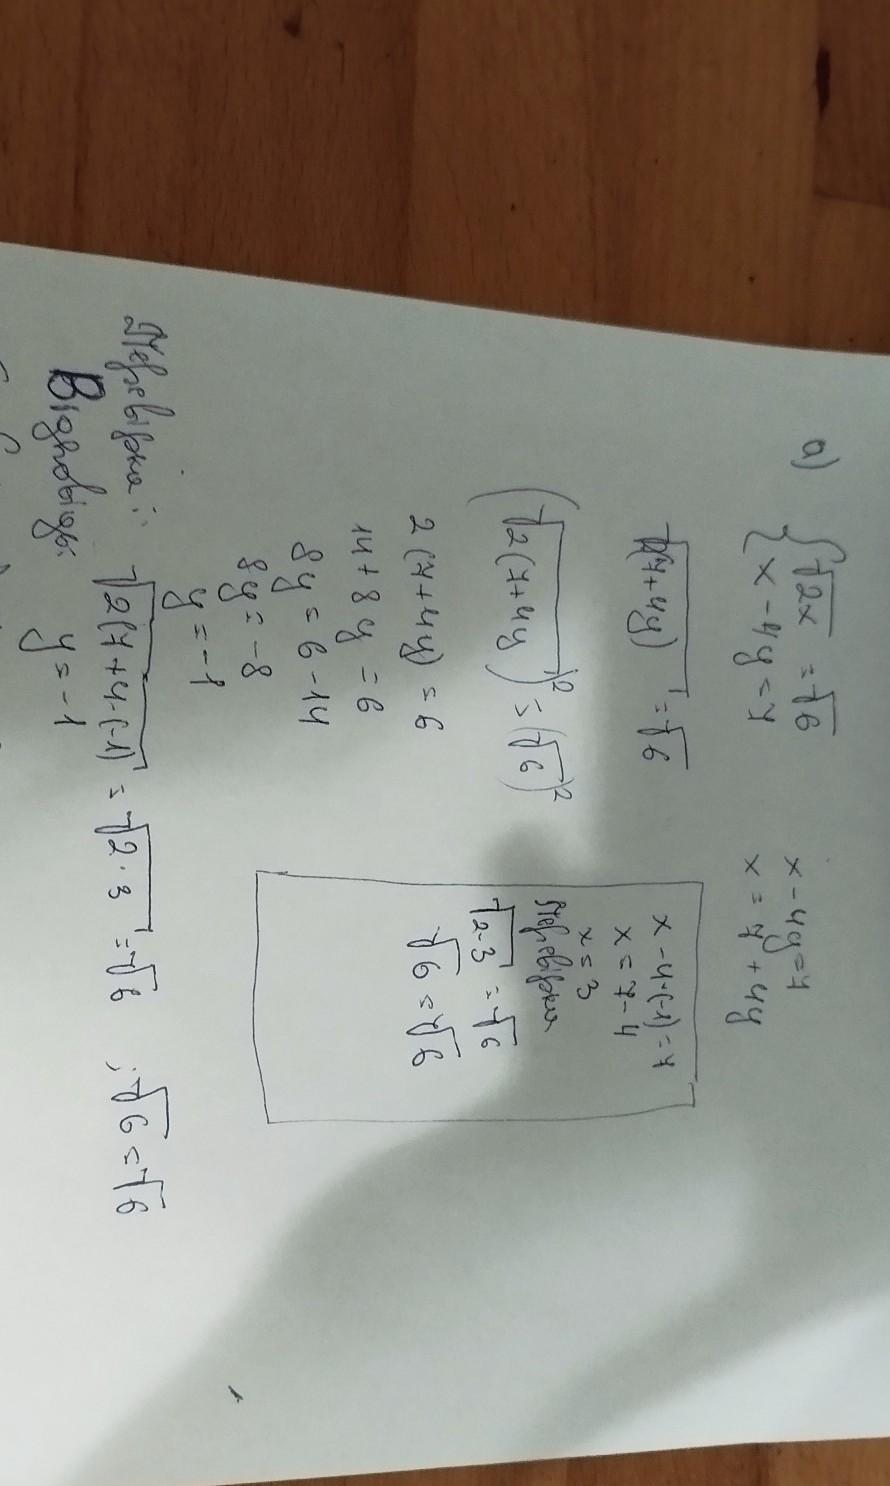 a) {√2x = √6
x - 4y = 7
x - 4y = 7
x = 7 + 4y
√2(7+4y) = √6
(√2(7+4y))² = (√6)²
2(7+4y) = 6
14 + 8y = 6
8y = 6 - 14
8y = -8
y = -1
x - 4·(-1) = 7
x = 7 - 4
x = 3
Перевірка
√2·3 = √6
√6 = √6
Перевірка: √2(7+4·(-1)) = √2·3 = √6 ; √6 = √6
Відповідь: y = -1